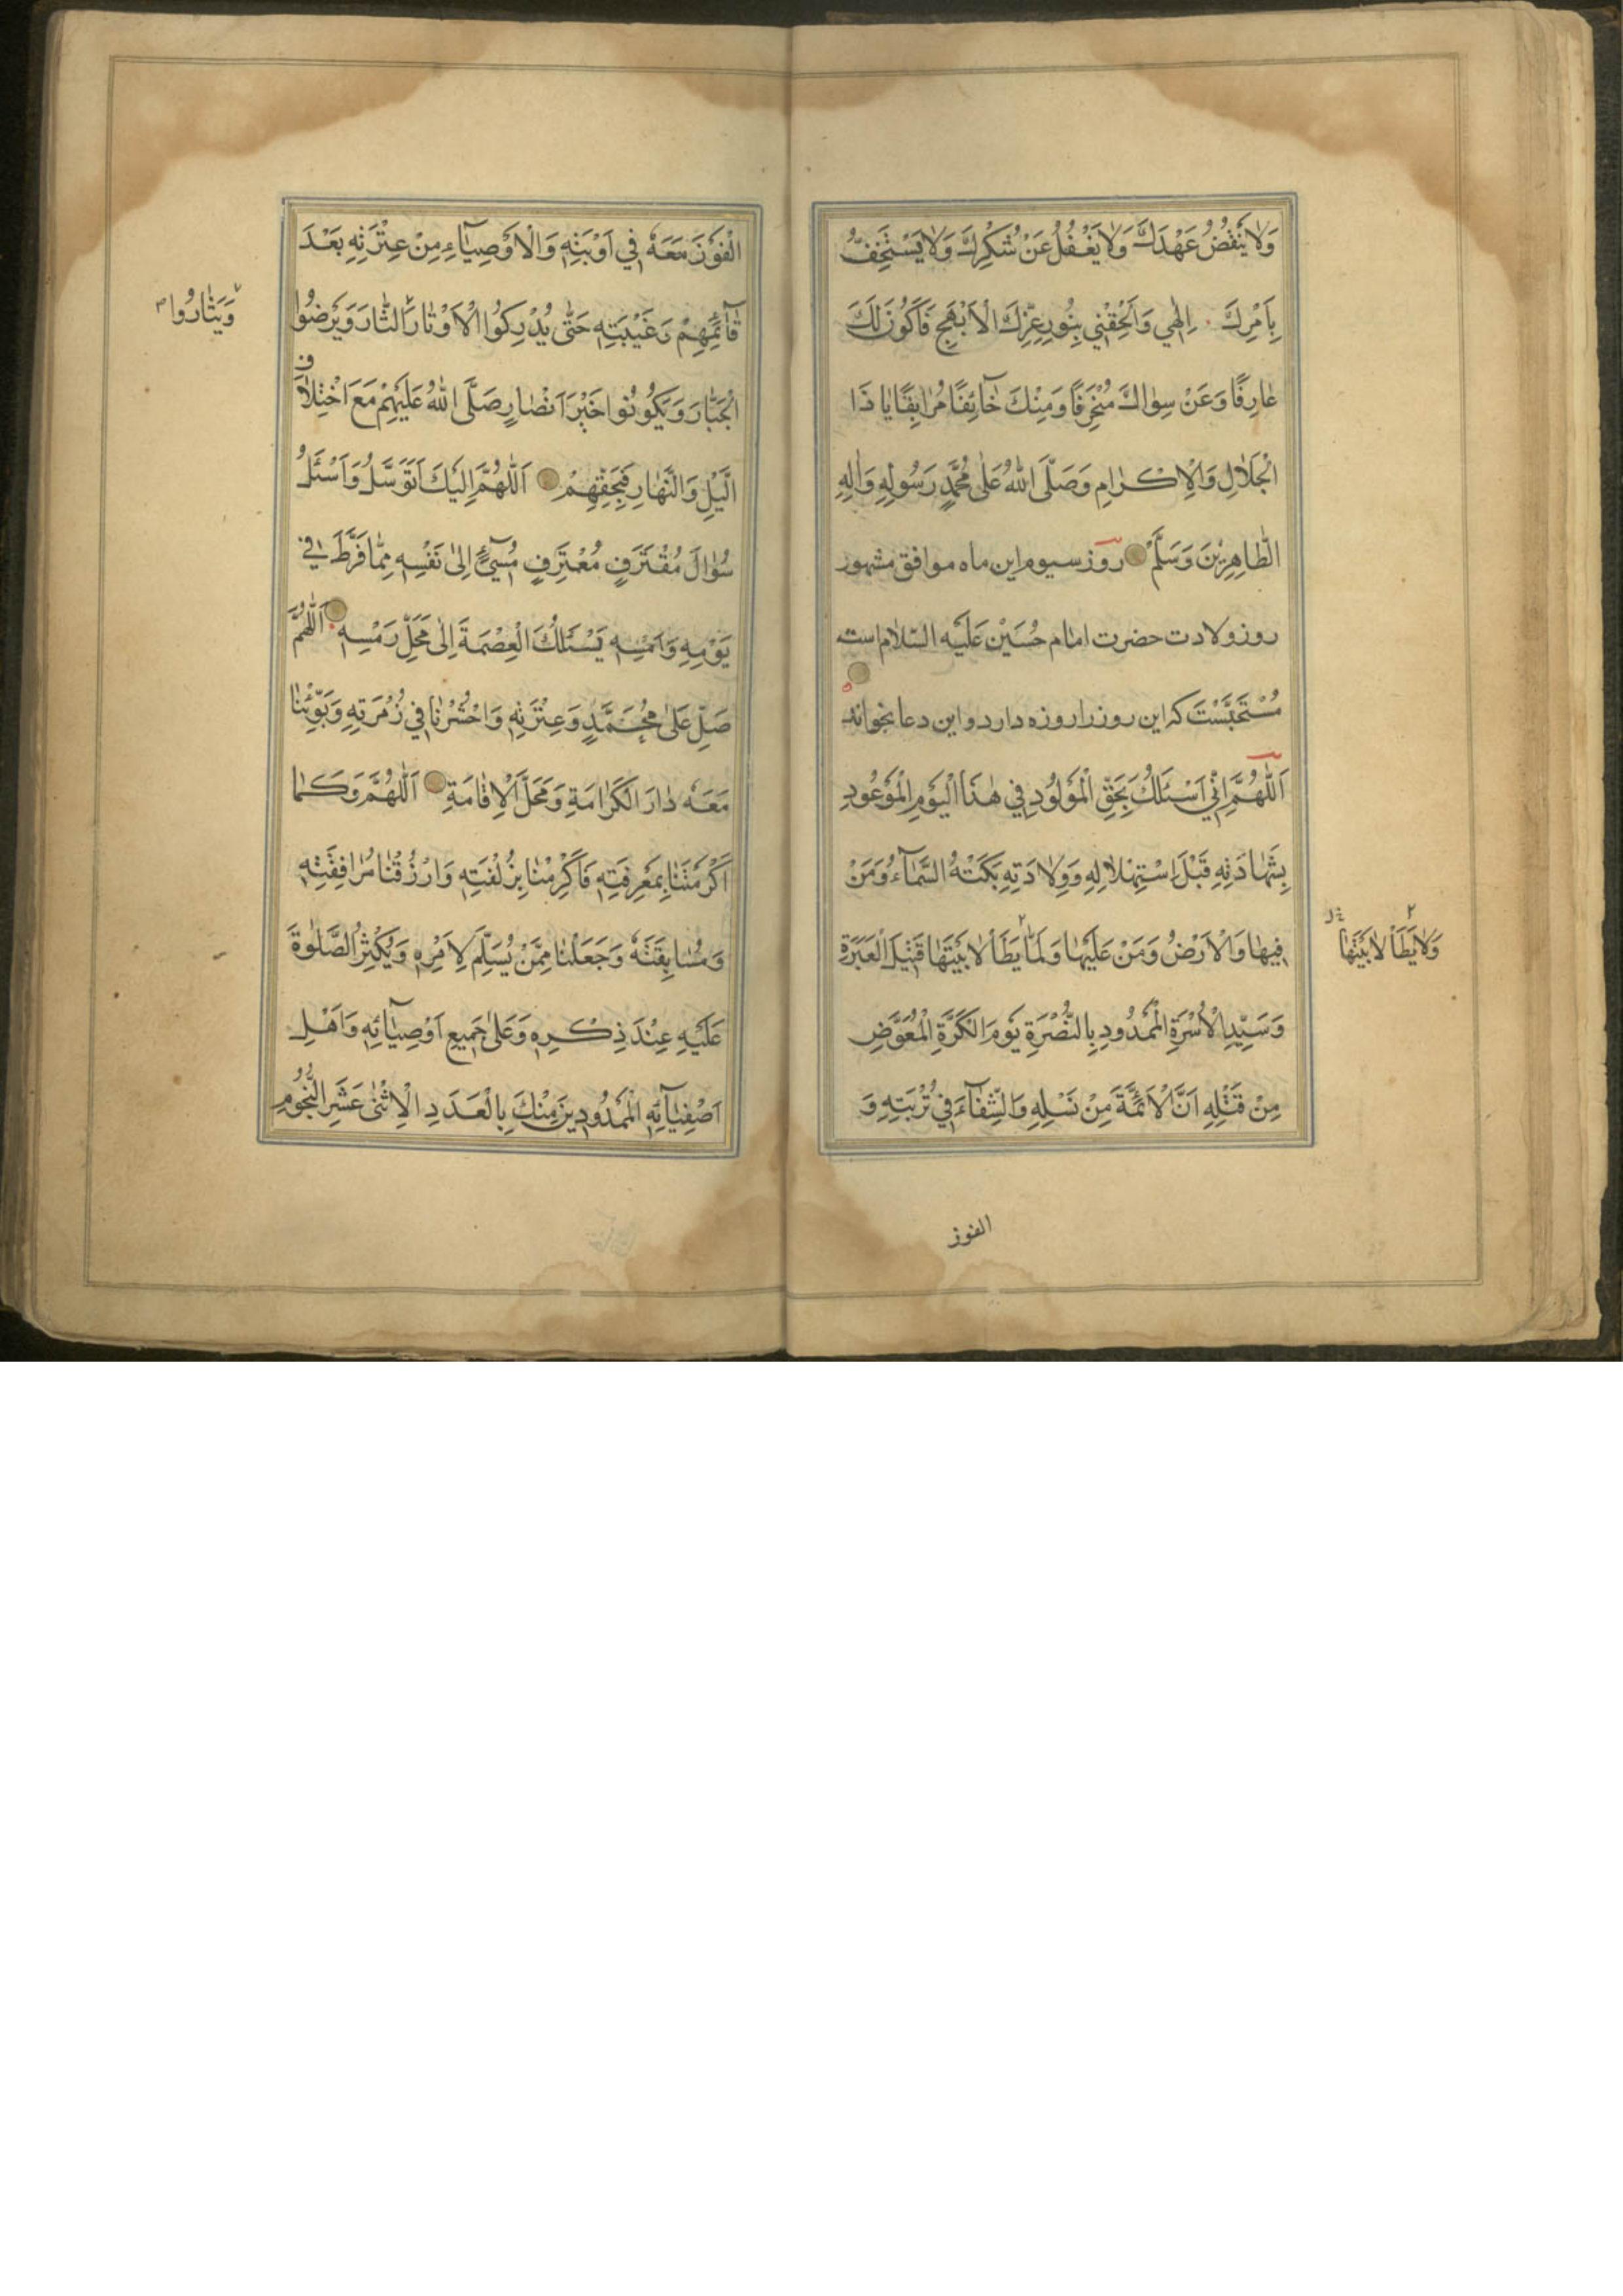 وَلا يَنْقُضُ عَهْدَكَ وَلا يَغْفُلُ عَنْ شُكْرِكَ وَلا يَسْتَخِفُّ
بِاَمْرِكَ اِلٰهي وَاَلْحِقْني بِنُورِ عِزِّكَ الْاَبْهَجِ فَاَكُونَ لَكَ
عٰارِفًا وَعَنْ سِوٰاكَ مُنْحَرِفًا وَمِنْكَ خٰآئِفًا مُرٰاقِبًا يٰا ذَا
الْجَلٰالِ وَالْاِكْرٰامِ وَصَلَّى اللّٰهُ عَلٰى مُحَمَّدٍ رَسُولِهِ وَاٰلِهِ
الطّٰاهِرِيْنَ وَسَلَّمَ روز سيوم اين ماه موافق مشهور
روز ولادت حضرت امام حُسَيْن عَلَيْهِ السّلام است
مُسْتَحَبَّسْت كه اين روز را روزه دارد و اين دعا بخواند
اَللّٰهُمَّ اِنّي اَسْئَلُكَ بِحَقِّ الْمَوْلُودِ في هٰذَا الْيَوْمِ الْمَوْعُودِ
بِشَهٰادَتِهِ قَبْلَ اِسْتِهْلٰالِهِ وَوِلٰادَتِهِ بَكَتْهُ السَّمٰآءُ وَمَنْ
فِيهٰا وَالْاَرْضُ وَمَنْ عَلَيْهٰا وَلَمّٰا يَطَأْ لٰابَيَتَهٰا قَتِيلِ الْعَبَرَةِ
وَلٰا يَطَأْ لٰابَيَتَهٰا
وَسَيِّدِ الْاُسْرَةِ الْمَمْدُودِ بِالنُّصْرَةِ يَوْمَ الْكَرَّةِ الْمُعَوَّضِ
مِنْ قَتْلِهِ اَنَّ الْاَئِمَّةَ مِنْ نَسْلِهِ وَالشِّفٰآءَ في تُرْبَتِهِ وَ
الفوز
الْفَوْزَ مَعَهُ في اَوْبَتِهِ وَالْاَوْصِيٰآءِ مِنْ عِتْرَتِهِ بَعْدَ
قٰآئِمِهِمْ وَغَيْبَتِهِ حَتّٰى يُدْرِكُوا الْاَوْتٰارَ الثّٰارَ وَيَرْضُوا
وَيَثْارُوا
الْجَبّٰارَ وَيَكُونُوا خَيْرَ اَنْصٰارٍ صَلَّى اللّٰهُ عَلَيْهِمْ مَعَ اخْتِلٰافِ
الَّيْلِ وَالنَّهٰارِ فَبِحَقِّهِمْ اَللّٰهُمَّ اِلَيْكَ اَتَوَسَّلُ وَاَسْئَلُ
سُؤٰالَ مُقْتَرِفٍ مُعْتَرِفٍ مُسيٓءٍ اِلٰى نَفْسِهِ مِمّٰا فَرَّطَ في
يَوْمِهِ وَاَمْسِهِ يَسْئَلُكَ الْعِصْمَةَ اِلٰى مَحَلِّ رَمْسِهِ اَللّٰهُمَّ
صَلِّ عَلٰى مُحَمَّدٍ وَعِتْرَتِهِ وَاحْشُرْنٰا في زُمْرَتِهِ وَبَوِّئْنٰا
مَعَهُ دٰارَ الْكَرٰامَةِ وَمَحَلَّ الْاِقٰامَةِ اَللّٰهُمَّ وَكَمٰا
اَكْرَمْتَنٰا بِمَعْرِفَتِهِ فَاَكْرِمْنٰا بِزُلْفَتِهِ وَارْزُقْنٰا مُرٰافَقَتَهُ
وَمُسٰابِقَتَهُ وَجَعَلْنٰا مِمَّنْ يُسَلِّمُ لِاَمْرِهِ وَيُكْثِرُ الصَّلٰوةَ
عَلَيْهِ عِنْدَ ذِكْرِهِ وَعَلٰى جَمِيعِ اَوْصِيٰآئِهِ وَاَهْلِ
اَصْفِيٰآئِهِ الْمَمْدُودِينَ مِنْكَ بِالْعَدَدِ الْاِثْنٰى عَشَرَ النُّجُومِ